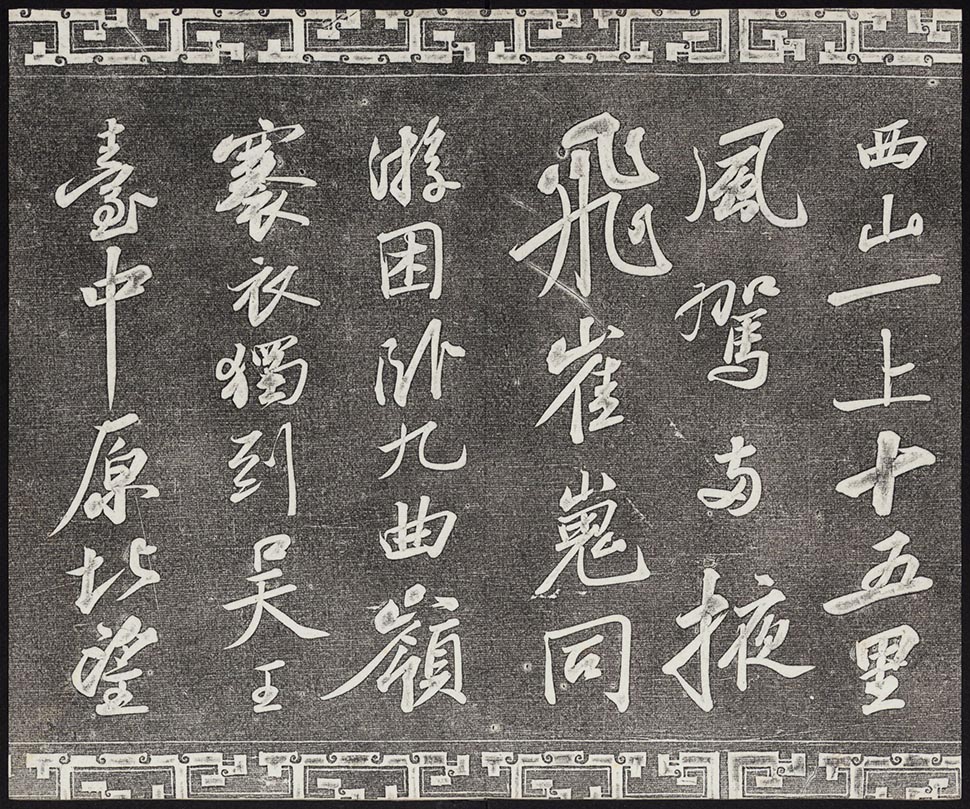 西山一上十五里
風駕兩掖
飛崔嵬同
游困卧九曲嶺
褰衣獨到吴王
臺中原北望